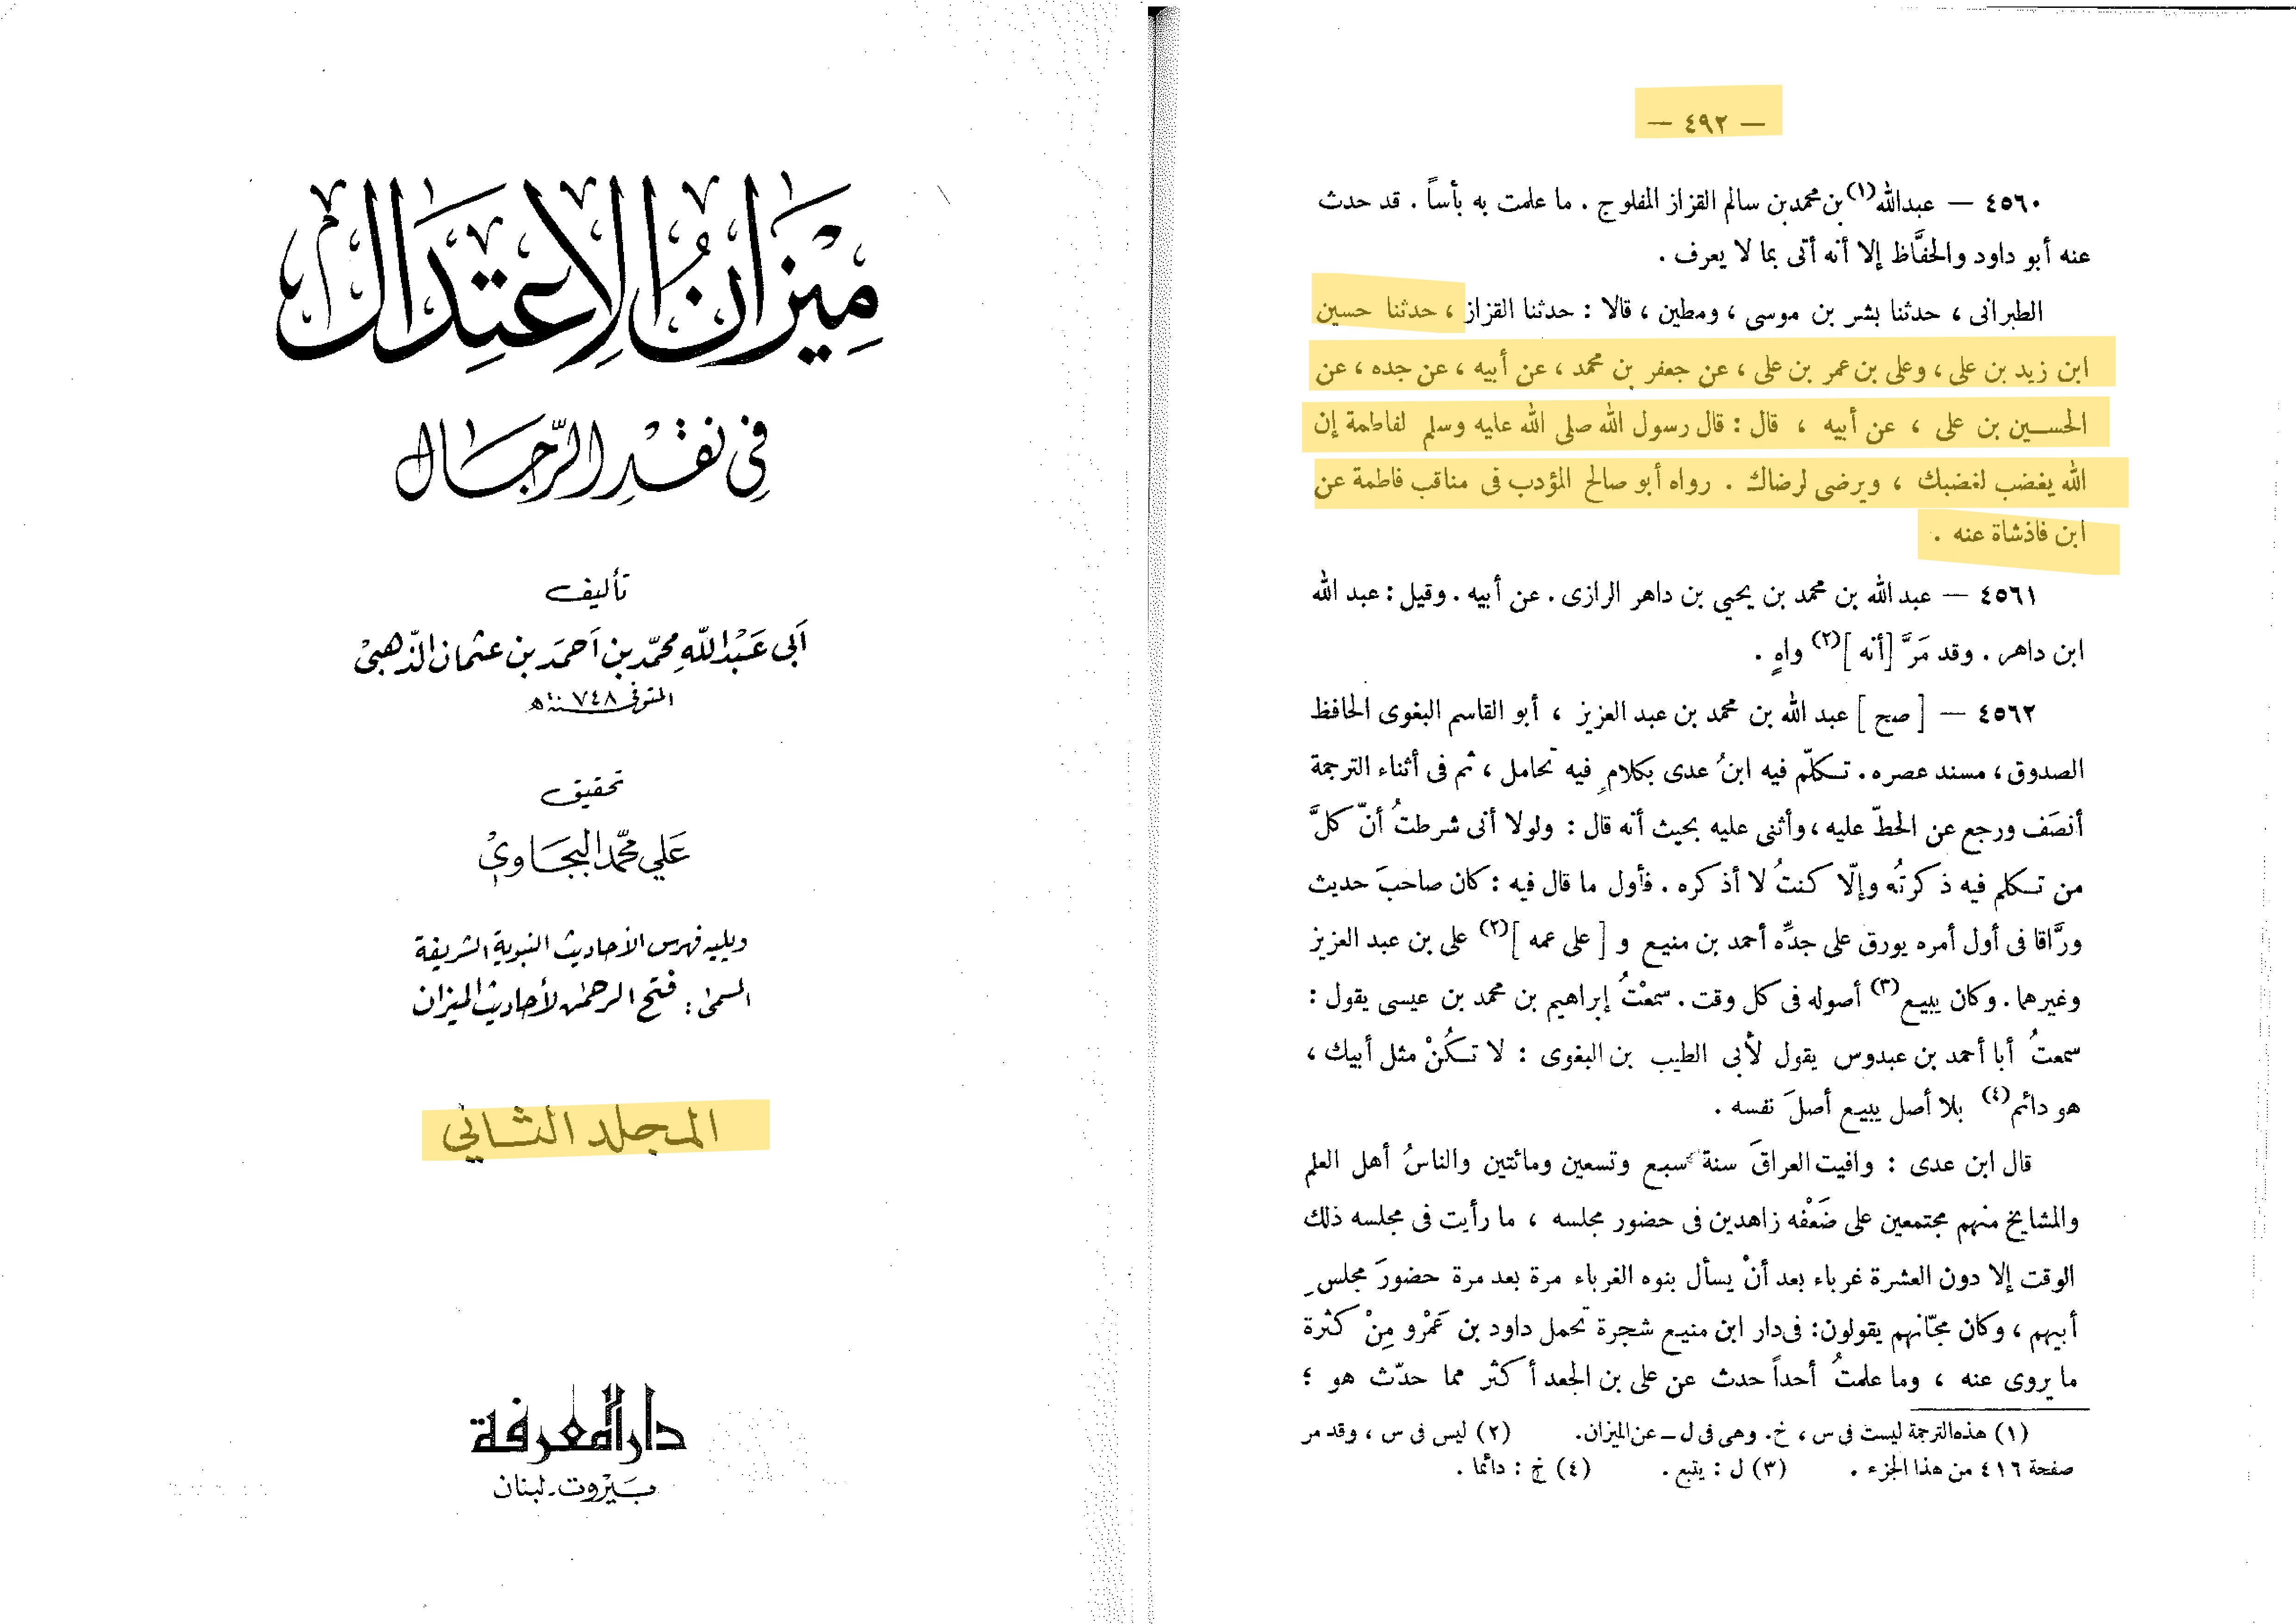 ميزان الاعتدال
في نقد الرجال
تأليف
أبي عبد الله محمد بن أحمد بن عثمان الذهبي
المتوفى سنة ٧٤٨ هـ
تحقيق
علي محمد البجاوي
ويليه فهرس الأحاديث النبوية الشريفة
المسمى : فتح الرحمن لأحاديث الميزان
المجلد الثاني
دار المعرفة
بيروت - لبنان
— ٤٩٢ —
٤٥٦٠ — عبدالله(١) بن محمد بن سالم القزاز المفلوج . ما علمت به بأساً . قد حدث
عنه أبو داود والحفَّاظ إلا أنه أتى بما لا يعرف .
الطبرانى ، حدثنا بشر بن موسى ، ومطين ، قالا : حدثنا القزاز ، حدثنا حسين
ابن زيد بن على ، وعلى بن عمر بن على ، عن جعفر بن محمد ، عن أبيه ، عن جده ، عن
الحسين بن على ، عن أبيه ، قال : قال رسول الله صلى الله عليه وسلم لفاطمة إن
الله يغضب لغضبك ، ويرضى لرضاك . رواه أبو صالح المؤدب فى مناقب فاطمة عن
ابن فاذشاة عنه .
٤٥٦١ — عبد الله بن محمد بن يحيي بن داهر الرازى . عن أبيه . وقيل : عبد الله
ابن داهر . وقد مَرَّ [ أنه ](٢) واهٍ .
٤٥٦٢ — [ صح ] عبد الله بن محمد بن عبد العزيز ، أبو القاسم البغوى الحافظ
الصدوق ، مسند عصره . تكلّم فيه ابنُ عدى بكلامٍ فيه تحامل ، ثم فى أثناء الترجمة
أنصَف ورجع عن الحطّ عليه ، وأثنى عليه بحيث أنه قال : ولولا أنى شرطتُ أنّ كلَّ
من تكلم فيه ذكرتُه وإلّا كنتُ لا أذكره . فأول ما قال فيه : كان صاحبَ حديث
ورَّاقا فى أول أمره يورق على جدِّه أحمد بن منيع و [ على عمه ](٢) على بن عبد العزيز
وغيرهما . وكان يبيع(٣) أصوله فى كل وقت . سمعْتُ إبراهيم بن محمد بن عيسى يقول :
سمعتُ أبا أحمد بن عبدوس يقول لأبى الطيب بن البغوى : لا تكُنْ مثل أبيك ،
هو دائم(٤) بلا أصل يبيع أصلَ نفسه .
قال ابن عدى : وافيت العراقَ سنة سبع وتسعين ومائتين والناسُ أهل العلم
والمشايخ منهم مجتمعين على ضَعْفه زاهدين فى حضور مجلسه ، ما رأيت فى مجلسه ذلك
الوقت إلا دون العشرة غرباء بعد أنْ يسأل بنوه الغرباء مرة بعد مرة حضورَ مجلسِ
أبيهم ، وكان مجّانهم يقولون : فى دار ابن منيع شجرة تحمل داود بن عَمْرو مِنْ كثرة
ما يروى عنه ، وما علمتُ أحداً حدث عن على بن الجعد أكثر مما حدّث هو ؛
(١) هذه الترجمة ليست فى س ، خ . وهى فى ل ـ عن الميزان . (٢) ليس فى س ، وقد مر
صفحة ٤١٦ من هذا الجزء . (٣) ل : يتبع . (٤) خ : دائما .